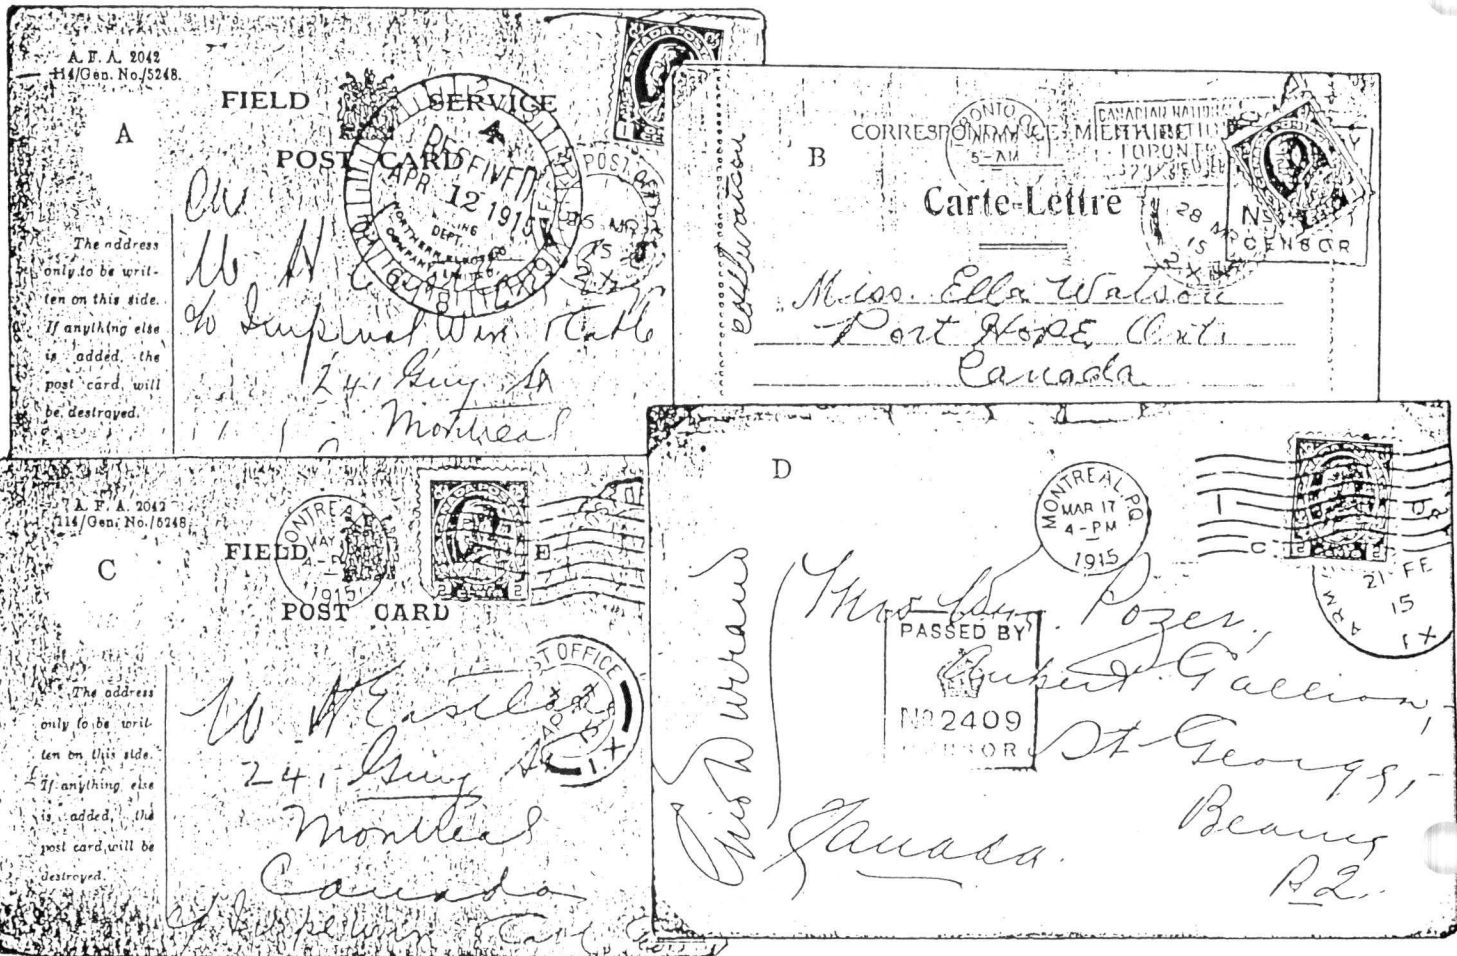 A. F. A. 2042
114/Gen. No./5248.
A
FIELD SERVICE
POST CARD
CANADA POSTAGE
APR 12 1915
DEPT.
NORTHERN ELECTRIC
COMPANY LIMITED
POST OFFICE
15
The address
only to be writ-
ten on this side.
If anything else
is added, the
post card will
be destroyed.
W H
c/o Imperial Wire & Cable
241 Guy St
Montreal
B
CORRESPONDANCE MILITAIRE
TORONTO, ONT
5-AM
CANADIAN NATIONAL
EXHIBITION
TORONTO
Carte-Lettre
28
15
No
CENSOR
Miss. Ella Watson
Port Hope, Ont.
Canada
C
A. F. A. 2042
114/Gen. No./5248
MONTREAL
MAY
1915
FIELD E
POST CARD
POST OFFICE
AP
15
XI
The address
only to be writ-
ten on this side.
If anything else
is added, the
post card will be
destroyed.
W. H Eastlake
241 Guy St
Montreal
Canada
D
MONTREAL, P.Q.
MAR 17
4-PM
1915
ARM
21 FE
15
X1
PASSED BY
No 2409
CENSOR
Mrs Wm. Pozer,
Aubert Gallion,
St Georges,
Beauce
P2.
Canada.